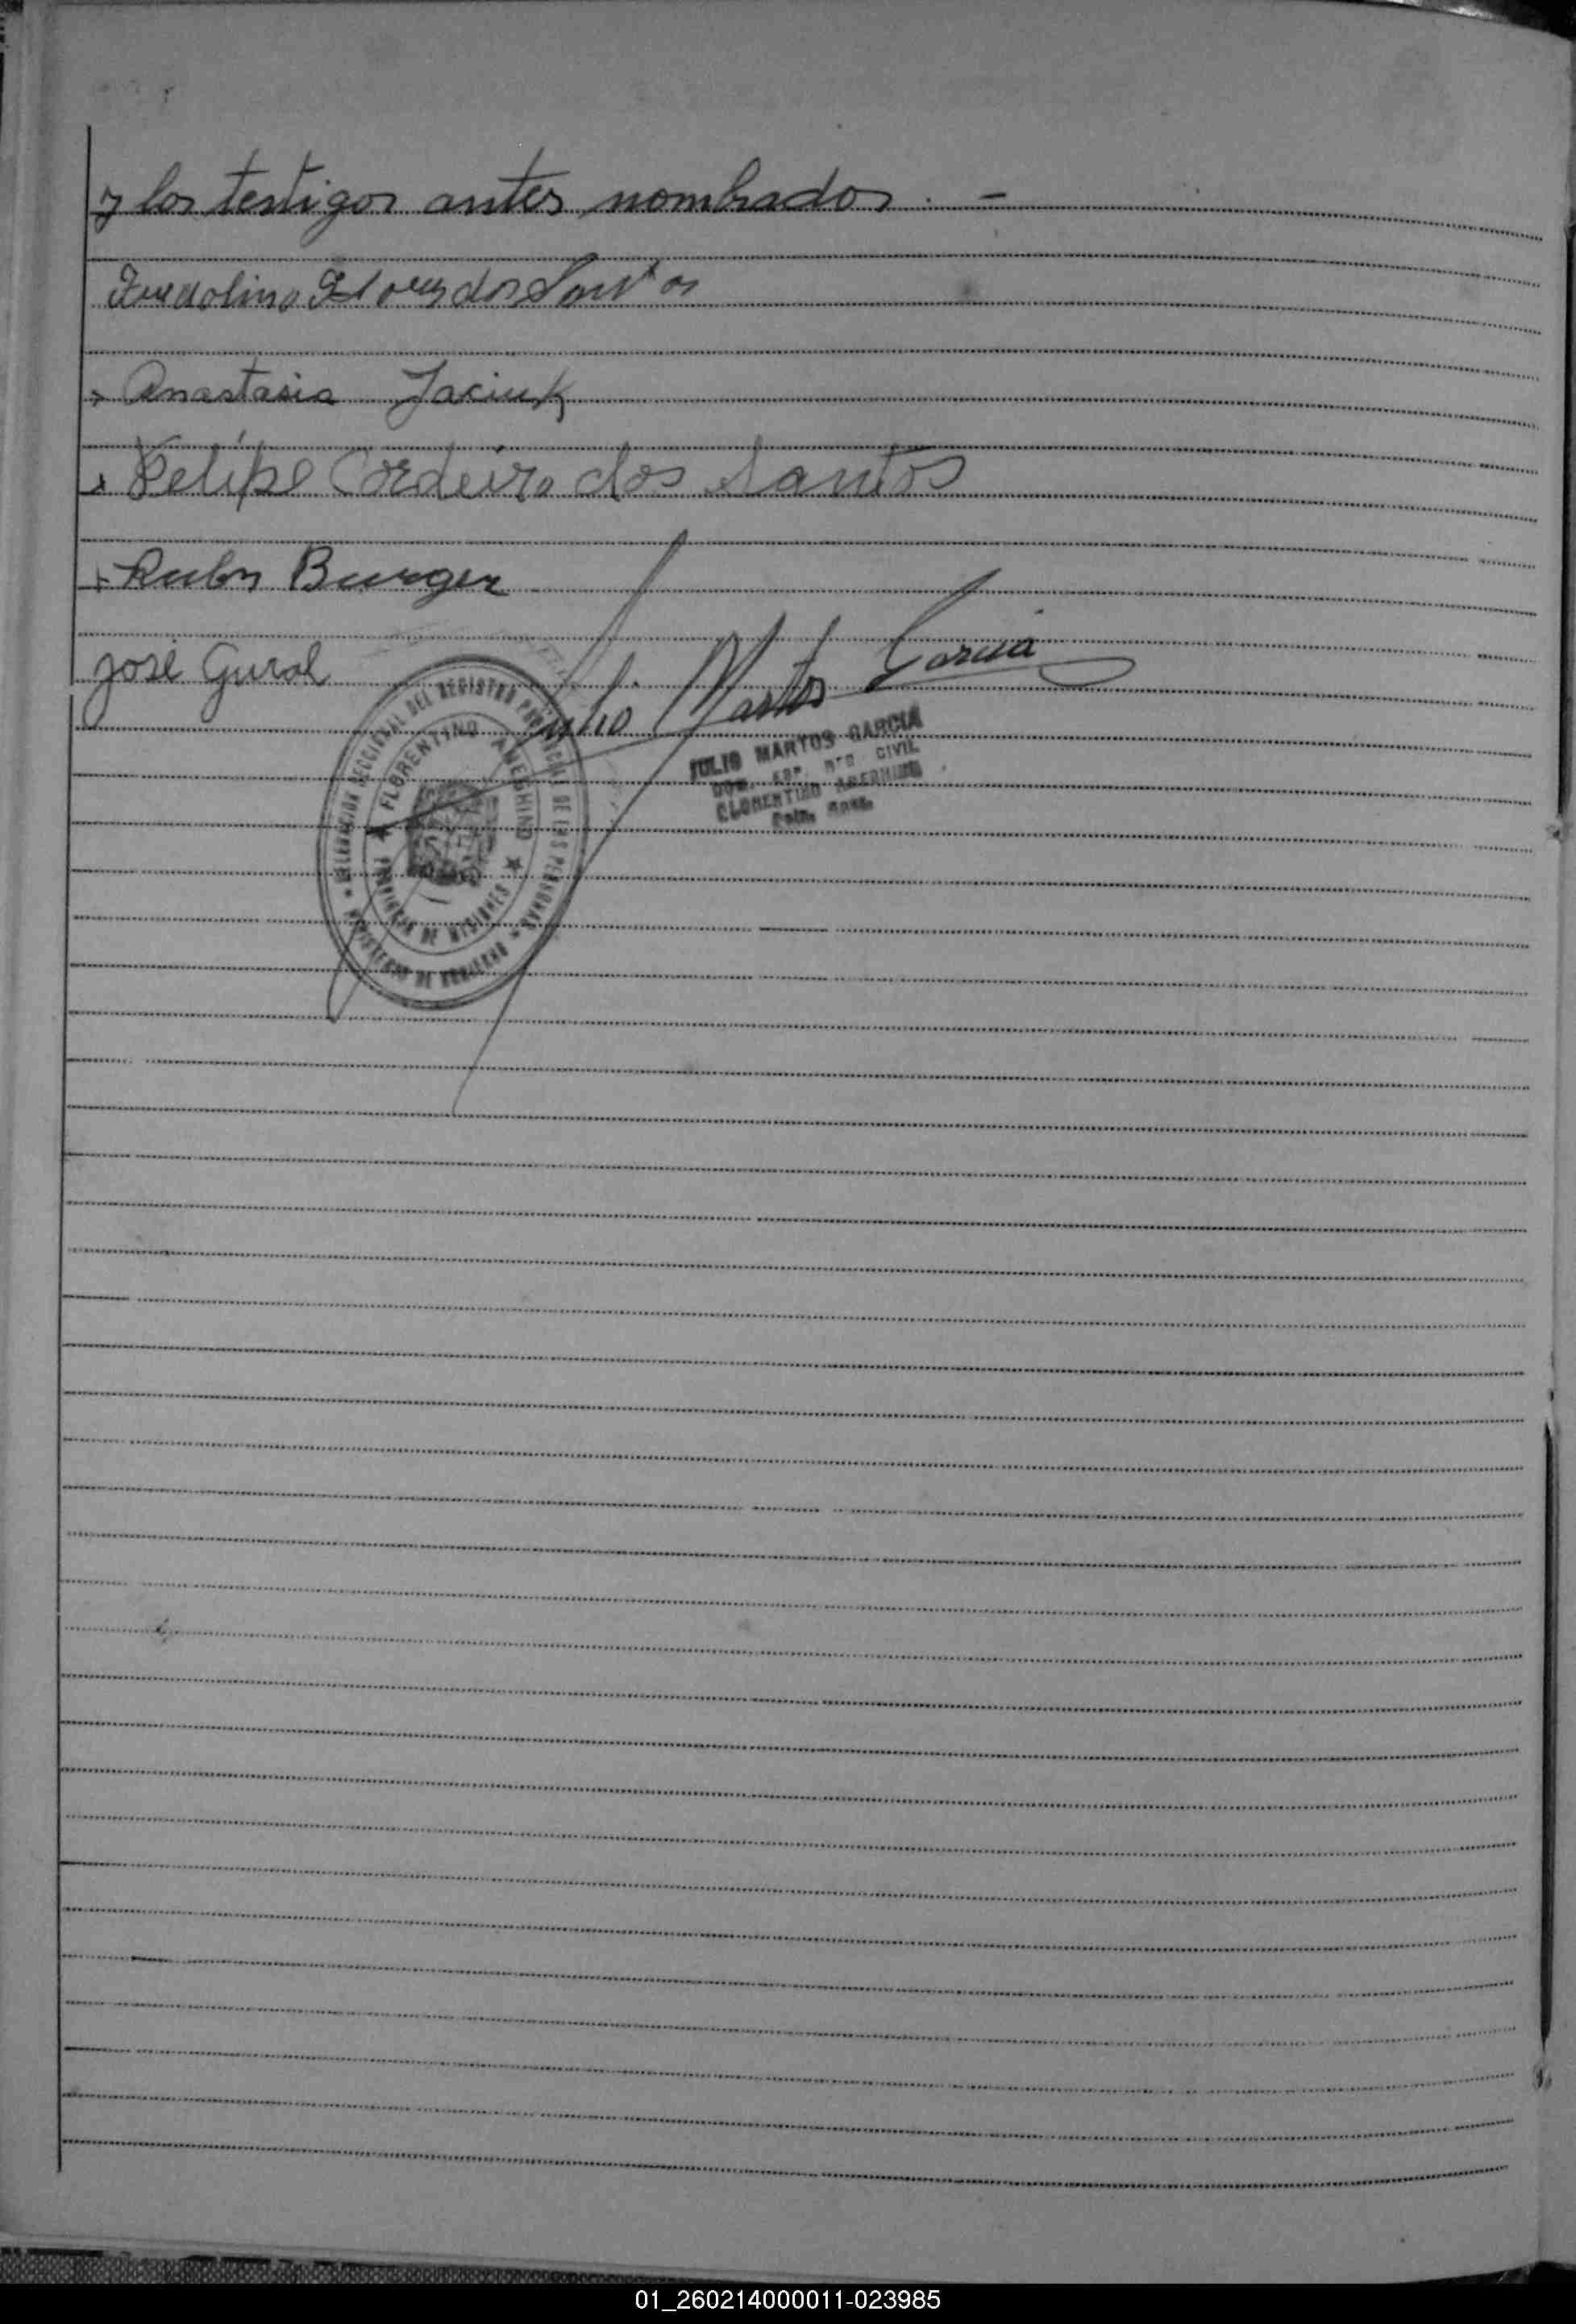 y los testigos antes nombrados. -
dos Santos
Anastasia Jaciuk
Felipe Cordeiro dos Santos
Burger
José Gural
Julio Martos Garcia
DELEGACION SECCIONAL DEL REGISTRO PROVINCIAL DE LAS PERSONAS
FLORENTINO AMEGHINO
PROVINCIA DE MISIONES
MINISTERIO DE GOBIERNO
JULIO MARTOS GARCIA
CIVIL
FLORENTINO AMEGHINO
01_260214000011-023985